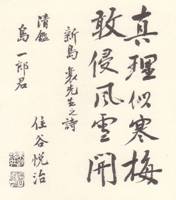 真理似寒梅
敢侵風雪開
新島襄先生之詩
住谷悦治
清鑑
島一郎君